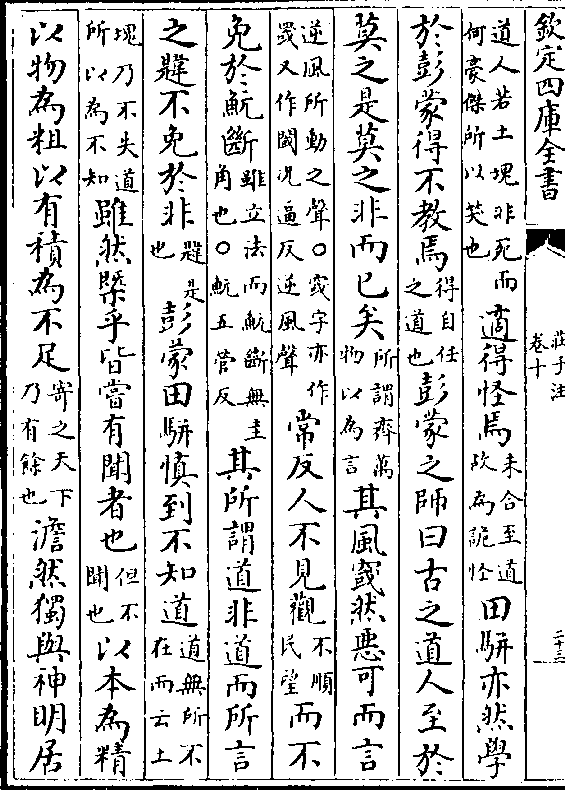 欽定四庫全書
莊子注
卷十
二十三
道人若土塊非死而何豪傑所以笑也適得怪焉未合至道故為詭怪田駢亦然學
於彭蒙得不教焉得自任之道也彭蒙之師曰古之道人至於
莫之是莫之非而已矣所謂齊萬物以為言其風窢然惡可而言
逆風所動之聲○窢字亦作罭又作閾况逼反逆風聲常反人不見觀不順民望而不
免於魭斷雖立法而魭斷無圭角也○魭五管反其所謂道非道而所言
之韙不免於非韙是也彭蒙田駢慎到不知道道無所不在而云土
塊乃不失道所以為不知雖然槩乎皆嘗有聞者也但不聞也以本為精
以物為粗以有積為不足寄之天下乃有餘也澹然獨與神明居